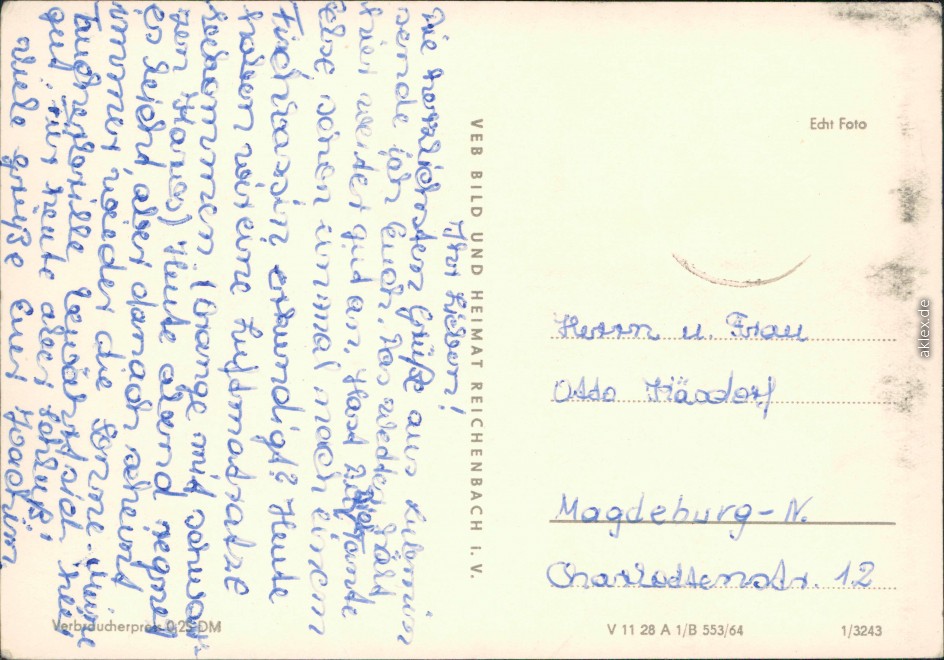 Ihr Lieben!
Die herzlichsten Grüße aus Lubmin
sende ich Euch. Das Wetter hält
hier weiter gut an. Hast Du Tante
Else schon einmal nach einem
erkundigt? Heute
haben wir eine Luftmatratze
bekommen (orange mit schwar-
zen) Heute abend regnet
es leicht, aber danach scheint
immer wieder die Sonne. Meine
Taucherbrille bewährt sich sehr
gut. Für heute aber Schluß.
Viele Grüße Euer Joachim.
VEB BILD UND HEIMAT REICHENBACH i. V.
Echt Foto
Herrn u. Frau
Otto
Magdeburg-N.
Charlottenstr. 12
Verbraucherpreis 0,25 DM
V 11 28 A 1/B 553/64
1/3243
aklex.de